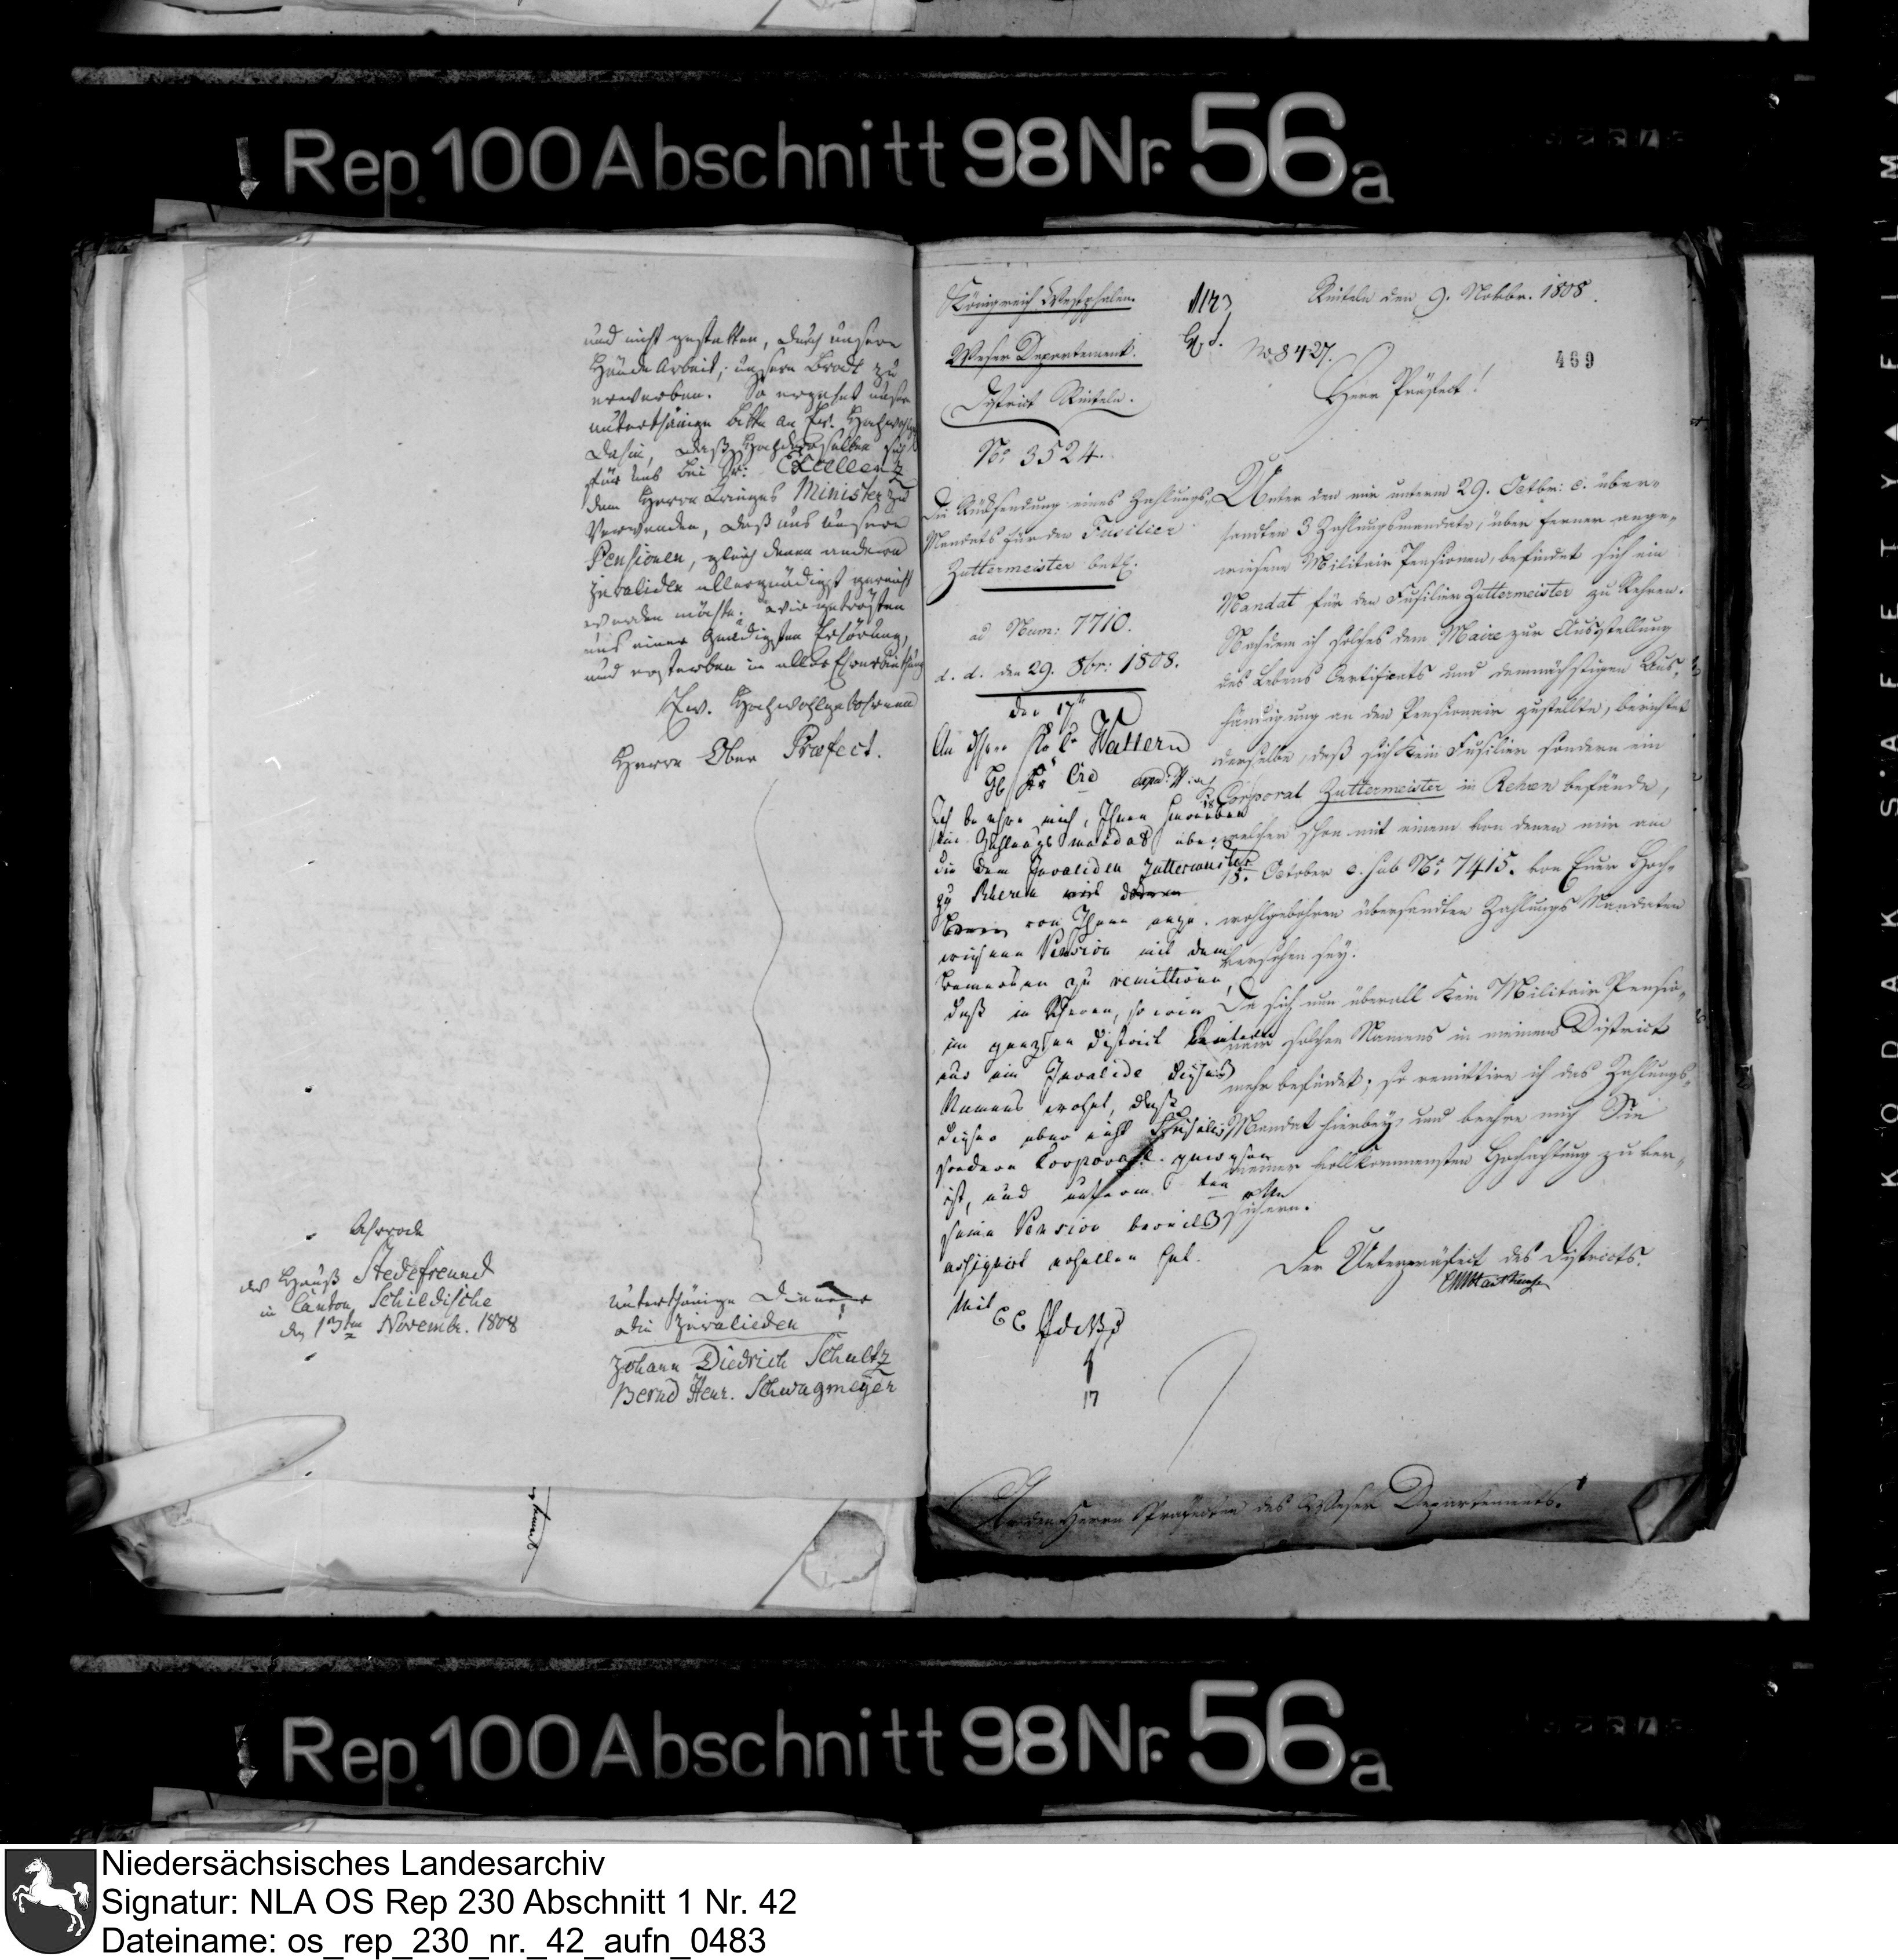 Rep. 100 Abschnitt 98 Nr. 56a
und nicht gestatten, durch unsere
Hände Arbeit, unsern Brodt zu
erwerben. So ergehet unsere
unterthänige bitte an Ew. Hochwohlg
dahin, daß Hochdieselben sich
für uns bei Sr. Excellenz
dem Herrn Krieges Minister zu
Verwenden, daß uns unsere
Pensionen, gleich denen andern
Invaliden allergnädigst gereicht
werden möchte. wir getrösten
uns einer Gnädigsten Erhörung,
und ersterben in aller Ehrerbietung
Ew. Hochwohlgebohrnen
Herrn Ober Præfect.
Stedefreund
in Canton Schildische
den 13ten Novembr. 1808
unterthänige Diener
die Invalieden
Johann Diedrich Schultz
Bernd Henr. Schwagmeyer
Königreich Westphalen.
Weser Departement.
District Rinteln.
No 3524.
Die Rücksendung eines Zahlungs
Mandats für den Fusilier
Zuttermeister betr.
ad Num: 7710.
d. d. den 29. 8br: 1808.
den 17t
Wattern
Ich beehre mich, Ihnen hierneben
ein Zahlungsmandat über
die dem Invaliden Zuttermeister
zu Rheren
von Ihnen ange-
wiesene Pension mit dem
Bemerken zu remittiren,
daß in Rheren, so wie
im ganzen District Rinteln
nur ein Invalide dieses
Namens wohnt, daß
dieser aber nicht Fusilier,
sondern Corporal gewesen
ist, und unterm ten
seine Pension bereits
assignirt erhalten hat.
17
Rinteln den 9. Novbr. 1808.
No 8427.
469
Herr Präfect!
Unter den mir unterm 29. Octbr: c. über-
sandten 3 Zahlungsmandate, über ferner ange-
wiesene Militair Pensionen, befindet sich ein
Mandat für den Fusilier Zuttermeister zu Rehren.
Nachdem ich solches dem Maire zur Ausstellung
des Lebens Certificats und demnächstigen Aus-
händigung an den Pensionair zustellte, berichtet
derselbe, daß sich kein Fusilier sondern ein
Corporal Zuttermeister in Rehren befände,
welcher schon mit einem von denen mir am
18. October c. sub No. 7415. von Euer Hoch-
wohlgebohren übersandten Zahlungs Mandaten
versehen sey.
Da sich nun überall kein Militair Pensio-
nair solchen Namens in meinem District
mehr befindet; so remittire ich das Zahlungs-
Mandat hierbey und beehre mich Sie
meiner vollkommensten Hochachtung zu ver-
sichern.
Der Unterpräfect des Districts.
An den Herrn Präfecten des Weser Departements.
Rep. 100 Abschnitt 98 Nr. 56a
KODAK SAFETY FILM
Niedersächsisches Landesarchiv
Signatur: NLA OS Rep 230 Abschnitt 1 Nr. 42
Dateiname: os_rep_230_nr._42_aufn_0483